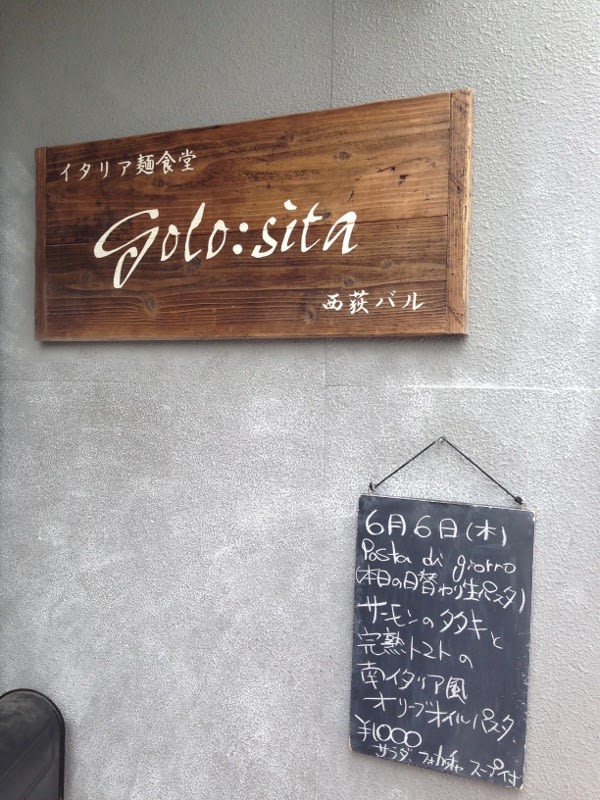 イタリア麺食堂
golo:sita
西荻バル
6月6日(木)
Pasta di giorno
(本日の日替わり生パスタ)
サーモンのタタキと
完熟トマトの
南イタリア風
オリーブオイルパスタ
¥1000
サラダ、フォカチャ スープ付